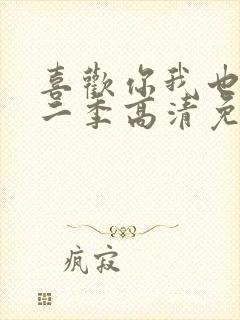 喜歡你我也
二季高清免
疯寂